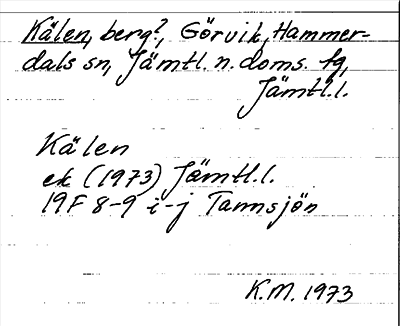 Kälen, berg?, Görvik, Hammer-
dals sn, Jämtl. n. doms. tg,
Jämtl.l.
Kälen
ek (1973) Jämtl.l.
19F 8-9 i-j Tannsjön
K.M. 1973